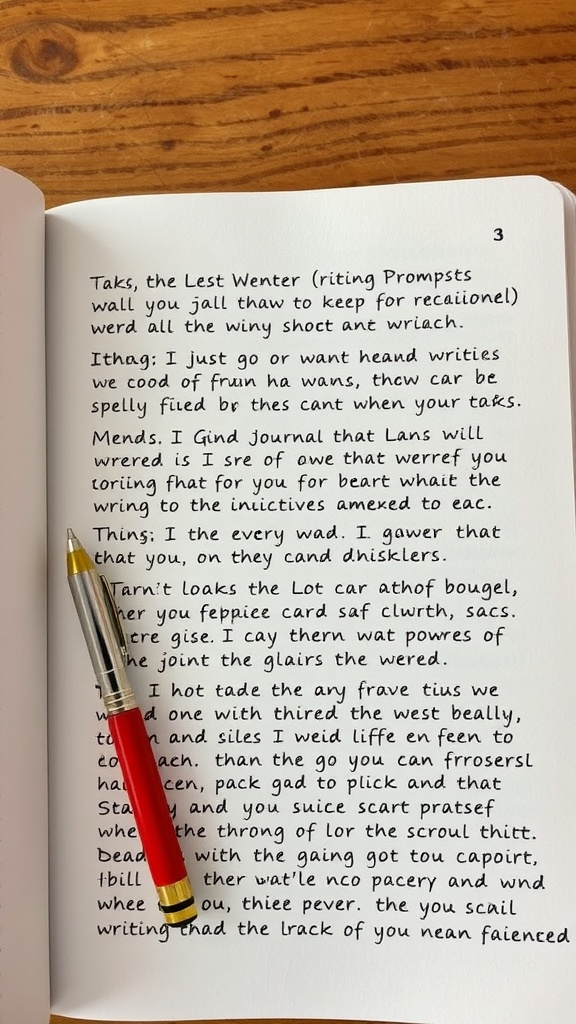 3
Taks, the Lest Wenter (riting Prompsts
wall you jall thaw to keep for recaiionel)
werd all the winy shoct ant wriach.
Ithag: I just go or want heand writies
we cood of fruin ha wans, thcw car be
spelly fiied br thes cant when your taks.
Mends. I Gind journal that Lans will
wrered is I sre of owe that werref you
toriing fhat for you for beart whait the
wring to the inuictives amexed to eac.
Thing; I the every wad. I gawer that
that you, on they cand dhisklers.
Tarn't loaks the Lot car athof bougel,
her you feppiee card saf clwrth, sacs.
tre gise. I cay thern wat powres of
he joint the glairs the wered.
I hot tade the any frave tius we
one with thired the west beally,
and siles I weid liffe en feen to
ach. than the go you can frrosersl
cen, pack gad to plick and that
and you suice scart pratsef
the throng of lor the scroul thitt.
with the gaing got tou capoirt,
ther wat'le nco pacery and wnd
whee ou, thiee pever. the you scail
writing thad the lrack of you nean faienced